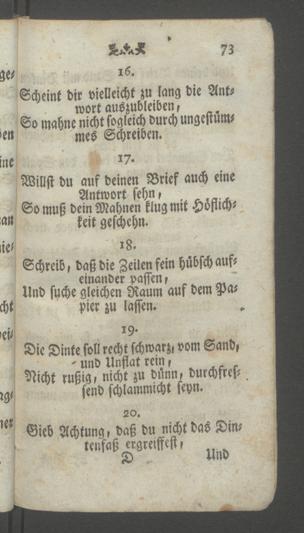 73
16.
Scheint dir vielleicht zu lang die Ant-
wort auszubleiben,
So mahne nicht sogleich durch ungestüm-
mes Schreiben.
17.
Willst du auf deinen Brief auch eine
Antwort sehn,
So muß dein Mahnen klug mit Höflich-
keit geschehn.
18.
Schreib, daß die Zeilen fein hübsch auf-
einander passen,
Und suche gleichen Raum auf dem Pa-
pier zu lassen.
19.
Die Dinte soll recht schwarz, vom Sand,
und Unflat rein,
Nicht rußig, nicht zu dünn, durchfres-
send schlammicht seyn.
20.
Gieb Achtung, daß du nicht das Din-
tenfaß ergreiffest,
D Und